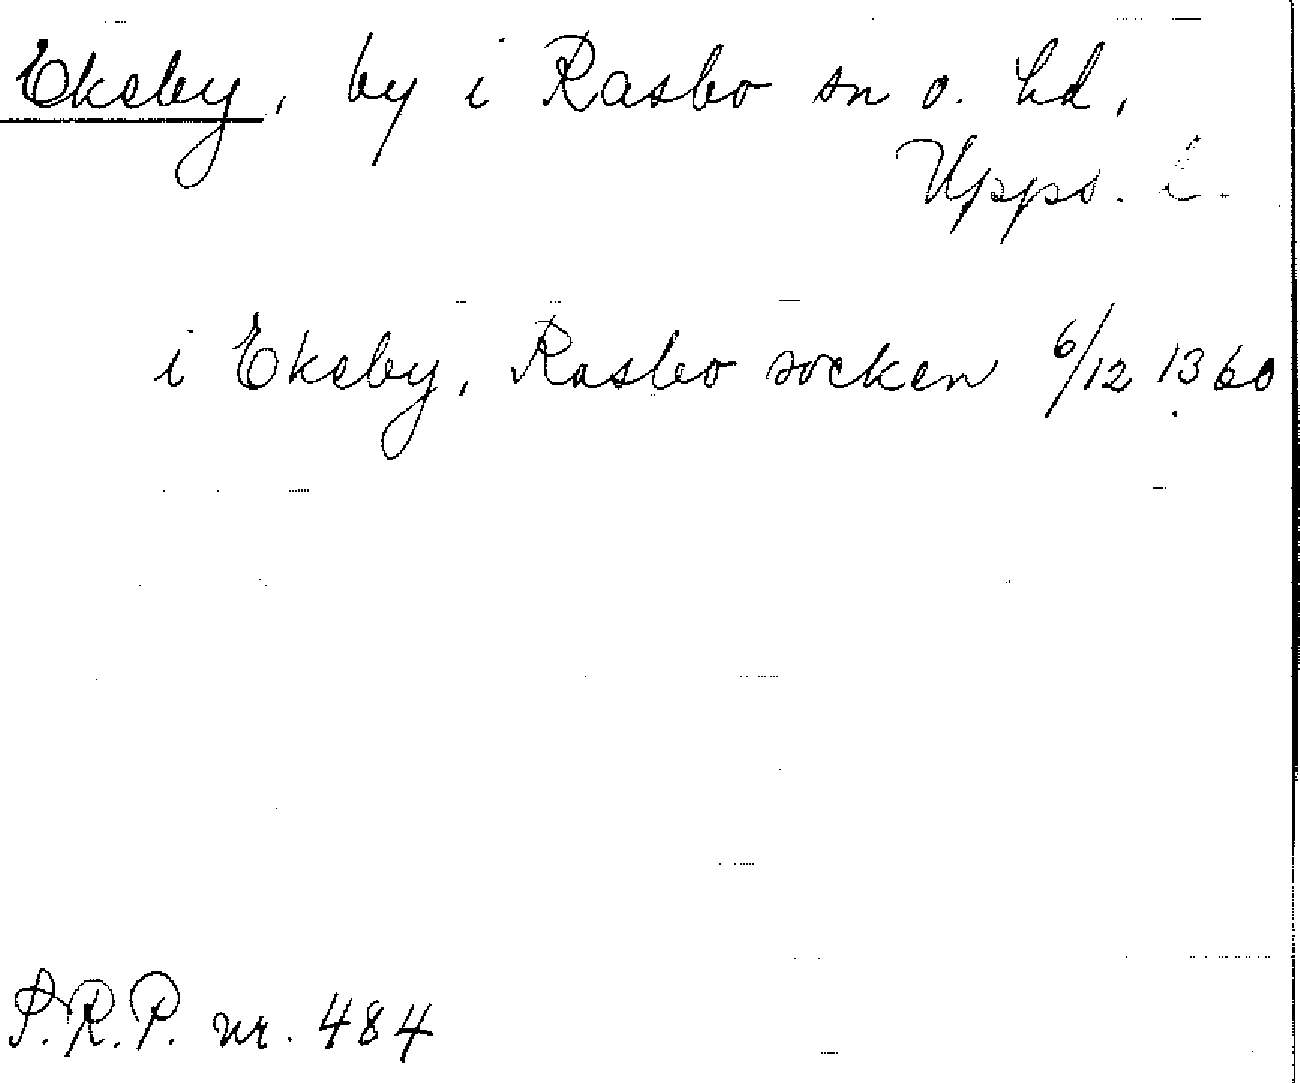 Ekeby, by i Rasbo sn o. hd,
Upps. l.
i Ekeby, Rasbo socken 6/12 1360
S.R.P. nr. 484